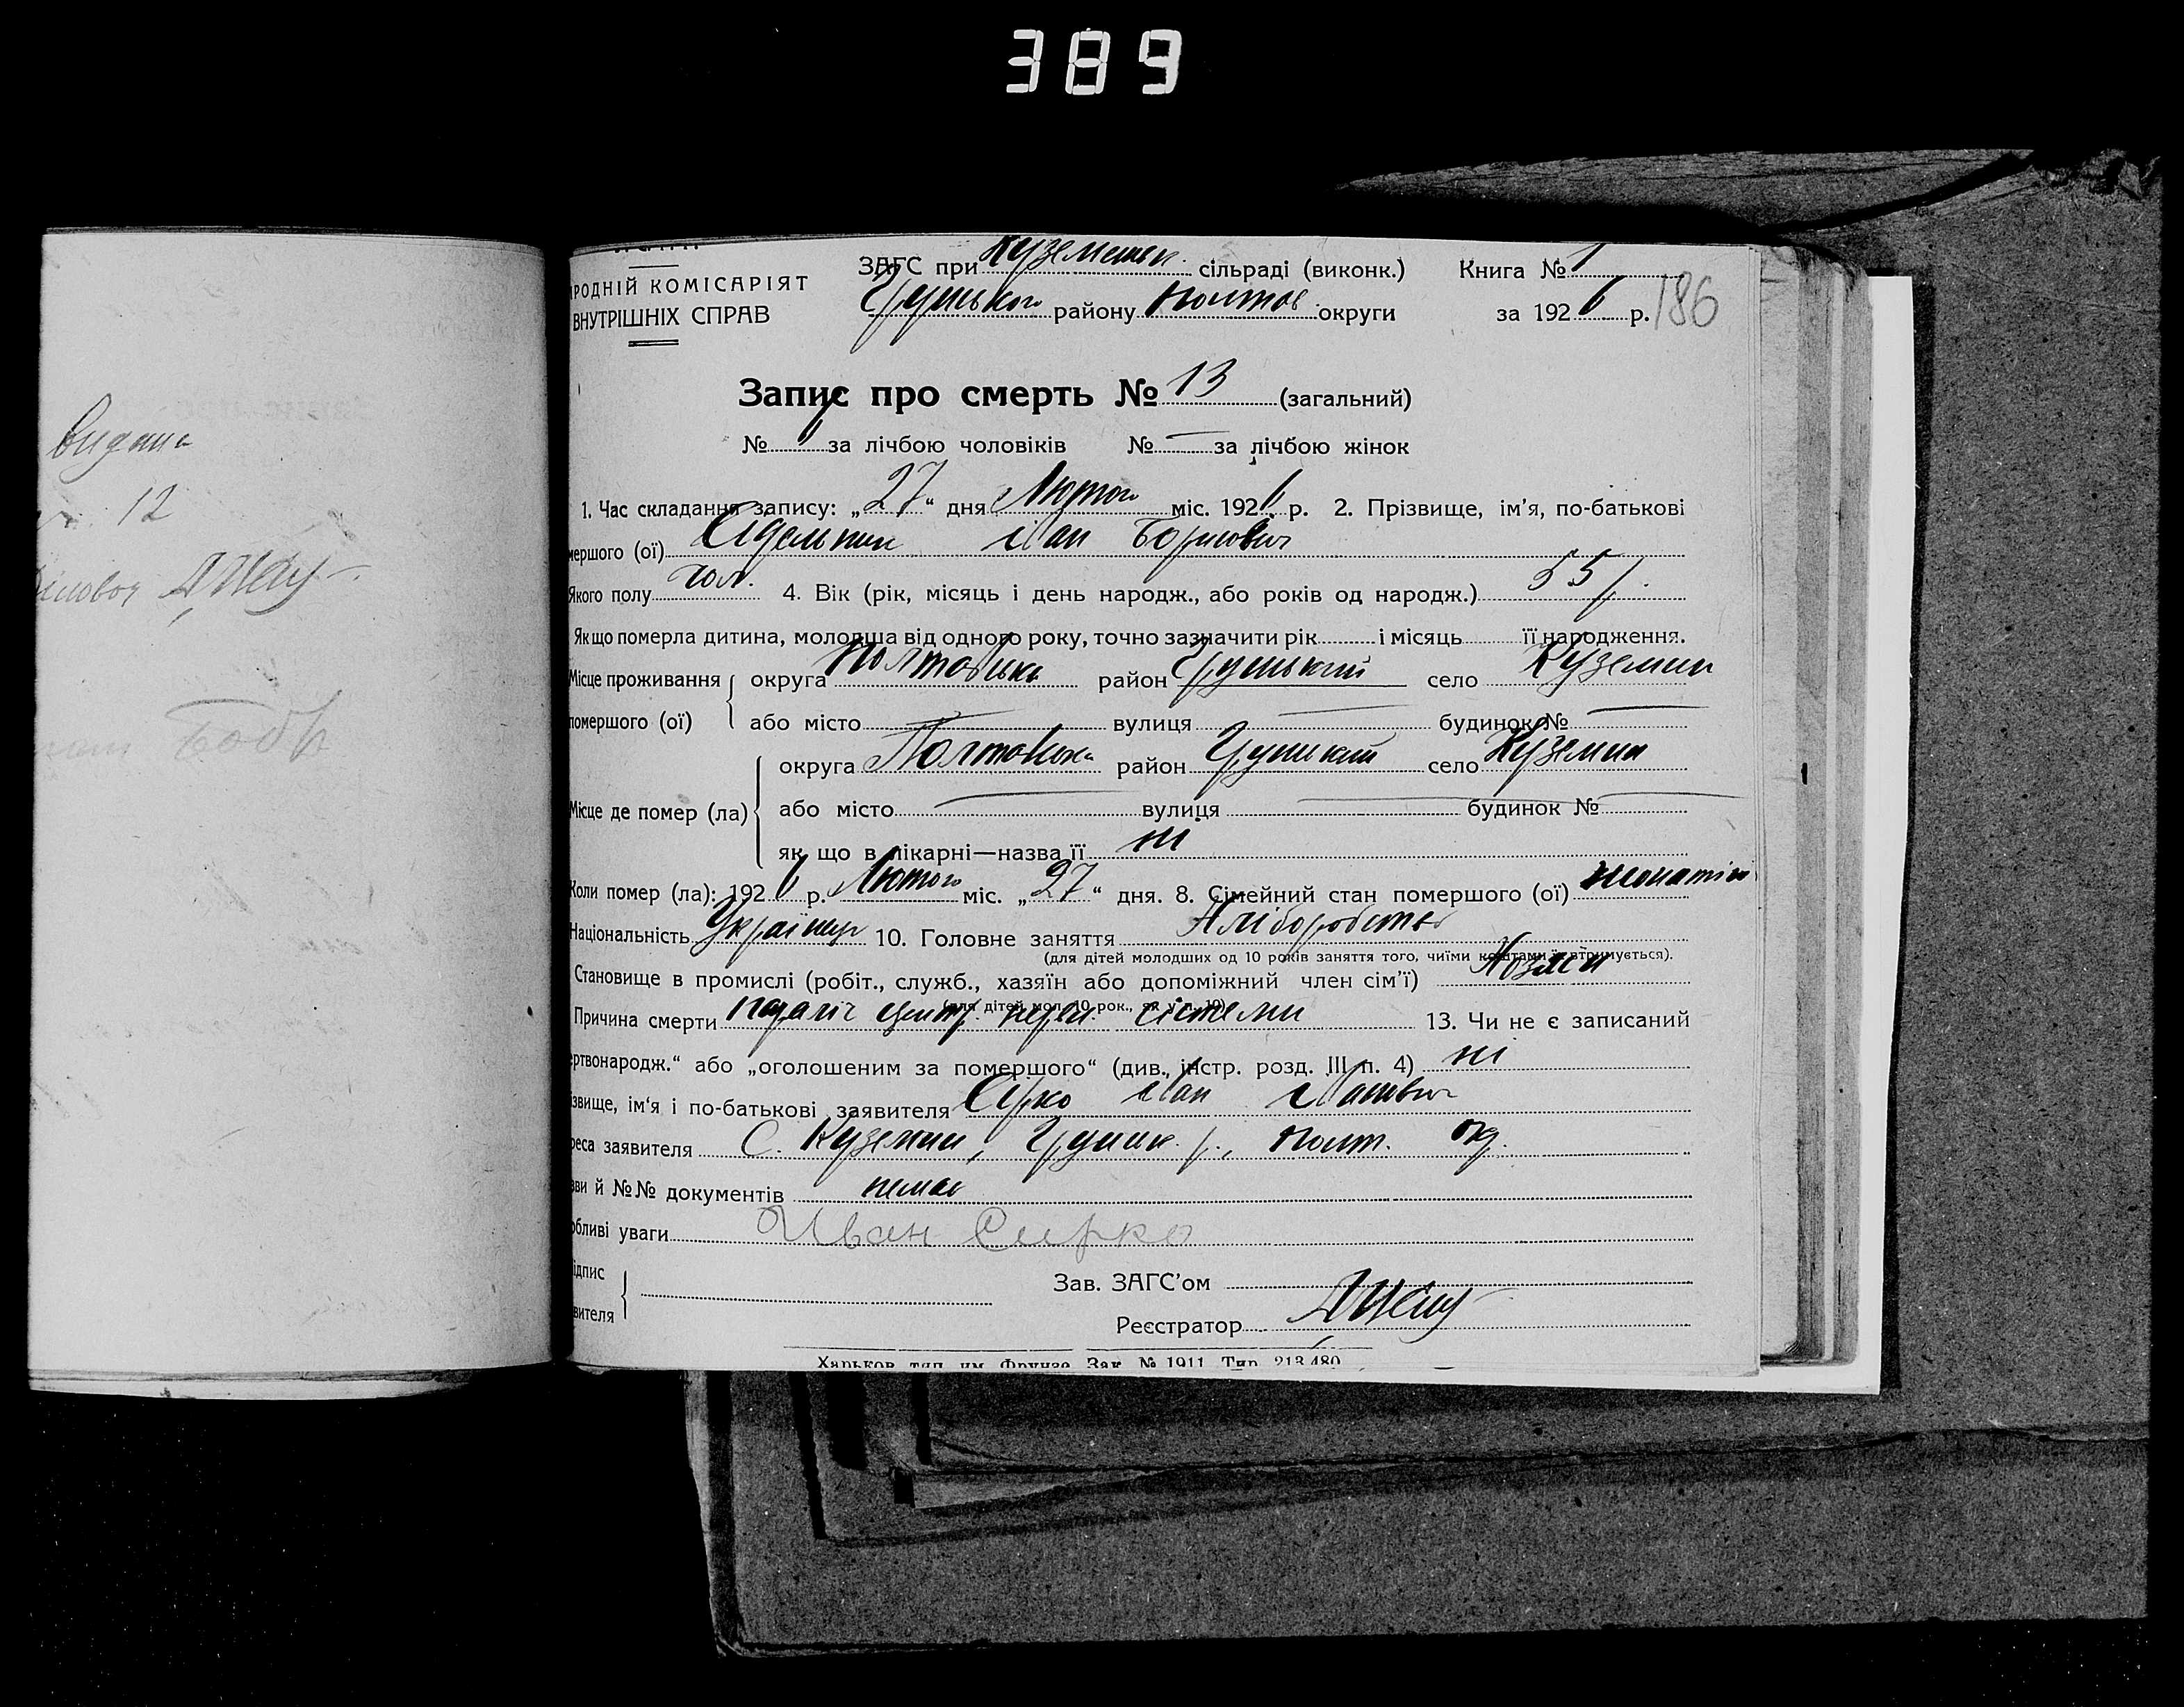 389
видана
12
РОДНІЙ КОМІСАРІЯТ
ВНУТРІШНІХ СПРАВ
ЗАГС при Куземенськ. сільраді (виконк.) Книга № 1
Грунського району Полтов. округи за 1926 р. 186
Запис про смерть № 13 (загальний)
№ 6 за лічбою чоловіків № — за лічбою жінок
1. Час складання запису: „27“ дня Лютого міс. 1926 р. 2. Прізвище, ім'я, по-батькові
мершого (ої) Іван Борисович
Якого полу чол. 4. Вік (рік, місяць і день народж., або років од народж.) 55 р.
Якщо померла дитина, молодша від одного року, точно зазначити рік і місяць її народження.
Місце проживання округа Полтавська район Грунський село Куземин
помершого (ої) або місто — вулиця — будинок № —
округа Полтавська район Грунський село Куземин
Місце де помер (ла) або місто — вулиця — будинок № —
як що в лікарні—назва її ні
Коли помер (ла): 1926 р. Лютого міс. „27“ дня. 8. Сімейний стан помершого (ої)
Національність Українець 10. Головне заняття Хліборобство
(для дітей молодших од 10 років заняття того, чиїми коштами їх втримується).
Становище в промислі (робіт., служб., хазяїн або допоміжний член сім'ї) Хозяїн
(для дітей мол. 10 рок., як у п. 10)
Причина смерти параліч центр. нерв. сістеми 13. Чи не є записаний
ертвонародж.“ або „оголошеним за помершого“ (див. інстр. розд. III п. 4) ні
ізвище, ім'я і по-батькові заявителя Сірко Іван Іванович
реса заявителя С. Куземин, Грунськ. р., Полт. окр.
зви й №№ документів немає
обливі уваги Иван Сирко
ідпис
вителя
Зав. ЗАГС'ом
Реєстратор
Харьков, тип. им. Фрунзе. Зак. № 1911. Тир. 213.480